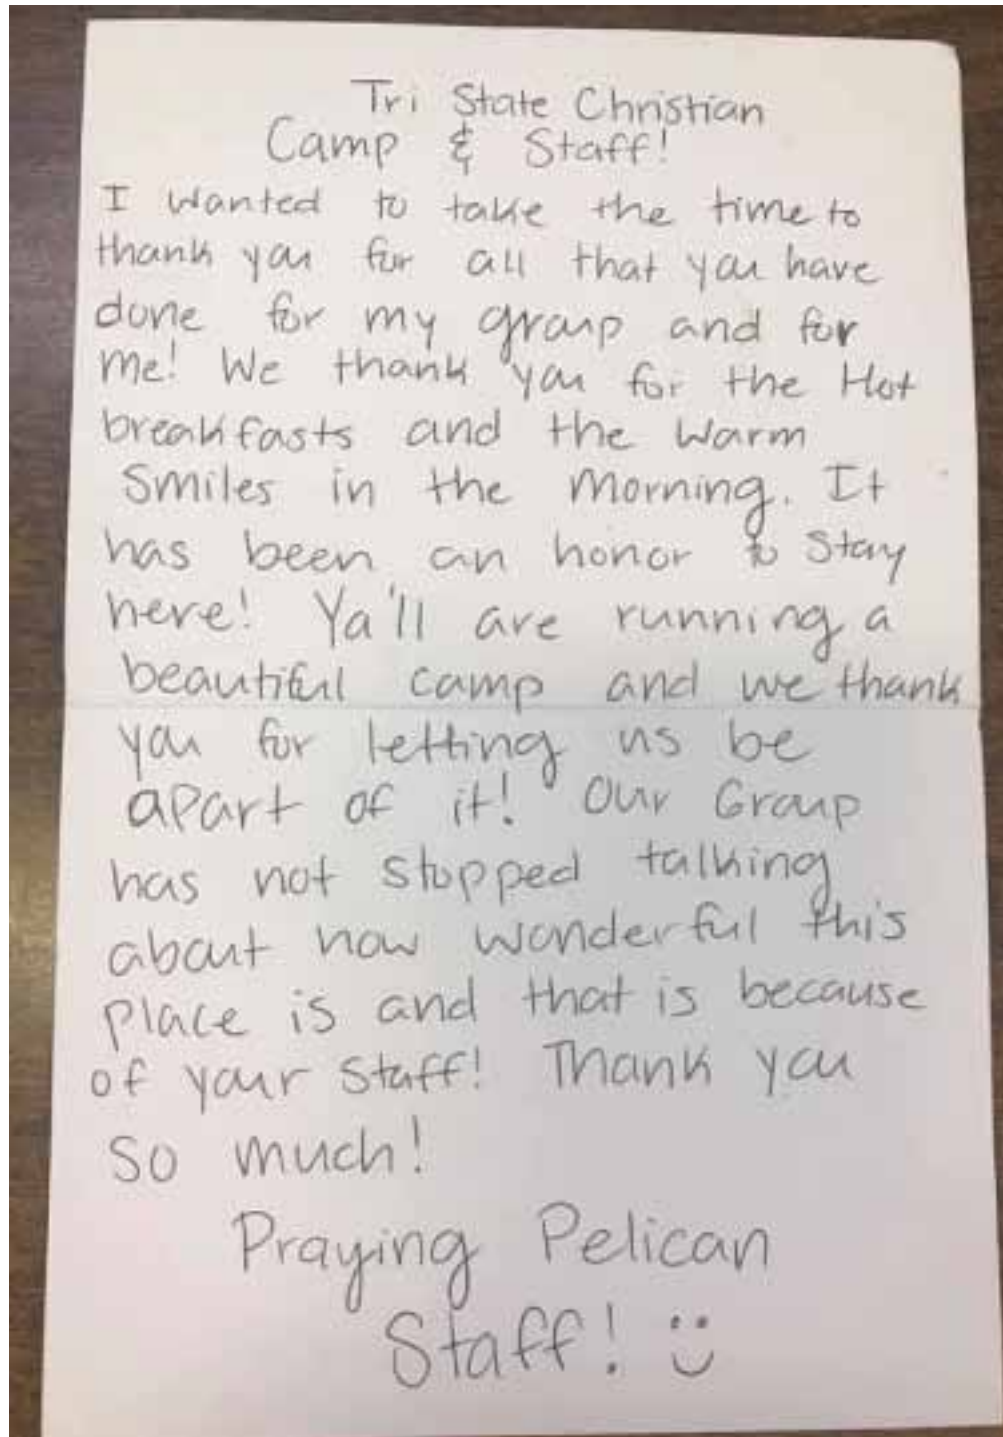 Tri State Christian
Camp & Staff!
I wanted to take the time to
thank you for all that you have
done for my group and for
me! We thank you for the Hot
breakfasts and the warm
Smiles in the morning. It
has been an honor to stay
here! Ya'll are running a
beautiful camp and we thank
you for letting us be
apart of it! Our Group
has not stopped talking
about how wonderful this
place is and that is because
of your staff! Thank you
so much!
Praying Pelican
Staff! :)